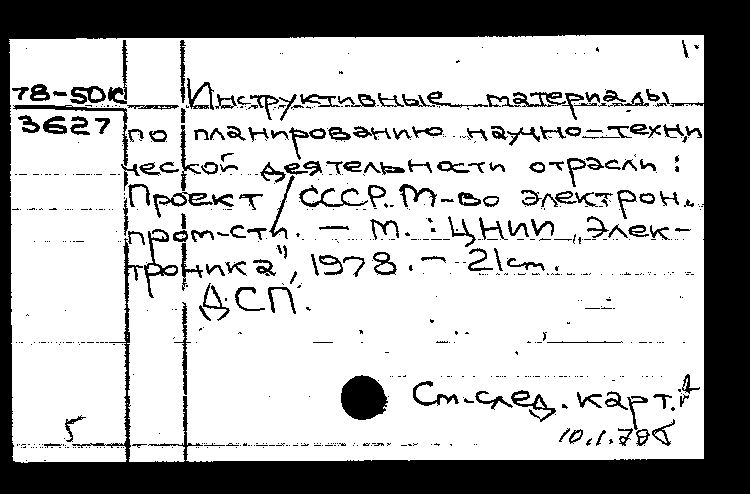 1.
78-50к Инструктивные материалы
3627 по планированию научно-техни
ческой деятельности отрасли :
Проект / СССР. М-во электрон.
пром-сти. — М. : ЦНИИ „Элек-
троника", 1978. — 21 см.
ДСП.
См. след. карт.
5